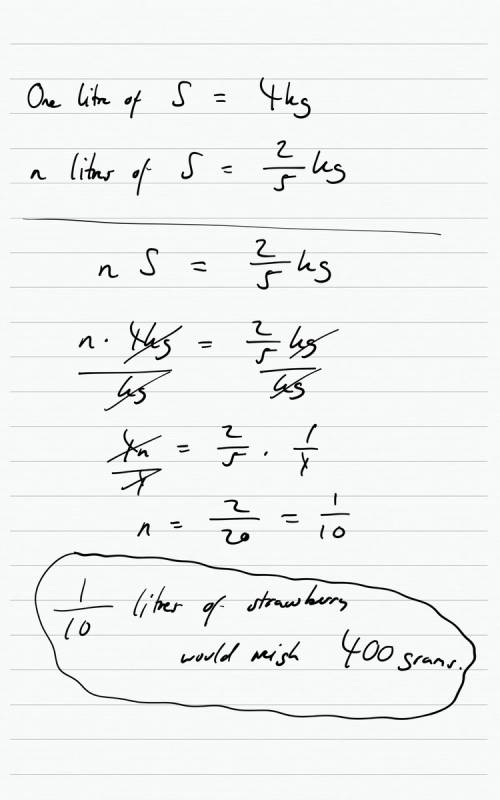 One litre of S = 4kg
n litres of S = 2/5 kg
n S = 2/5 kg
n · 4kg/kg = 2/5 kg/kg
4n/4 = 2/5 · 1/4
n = 2/20 = 1/10
1/10 litres of strawberry
would weigh 400 grams.